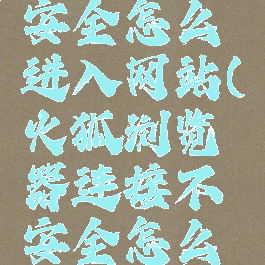 安全怎么
进入网站(
火狐浏览
器连接不
安全怎么